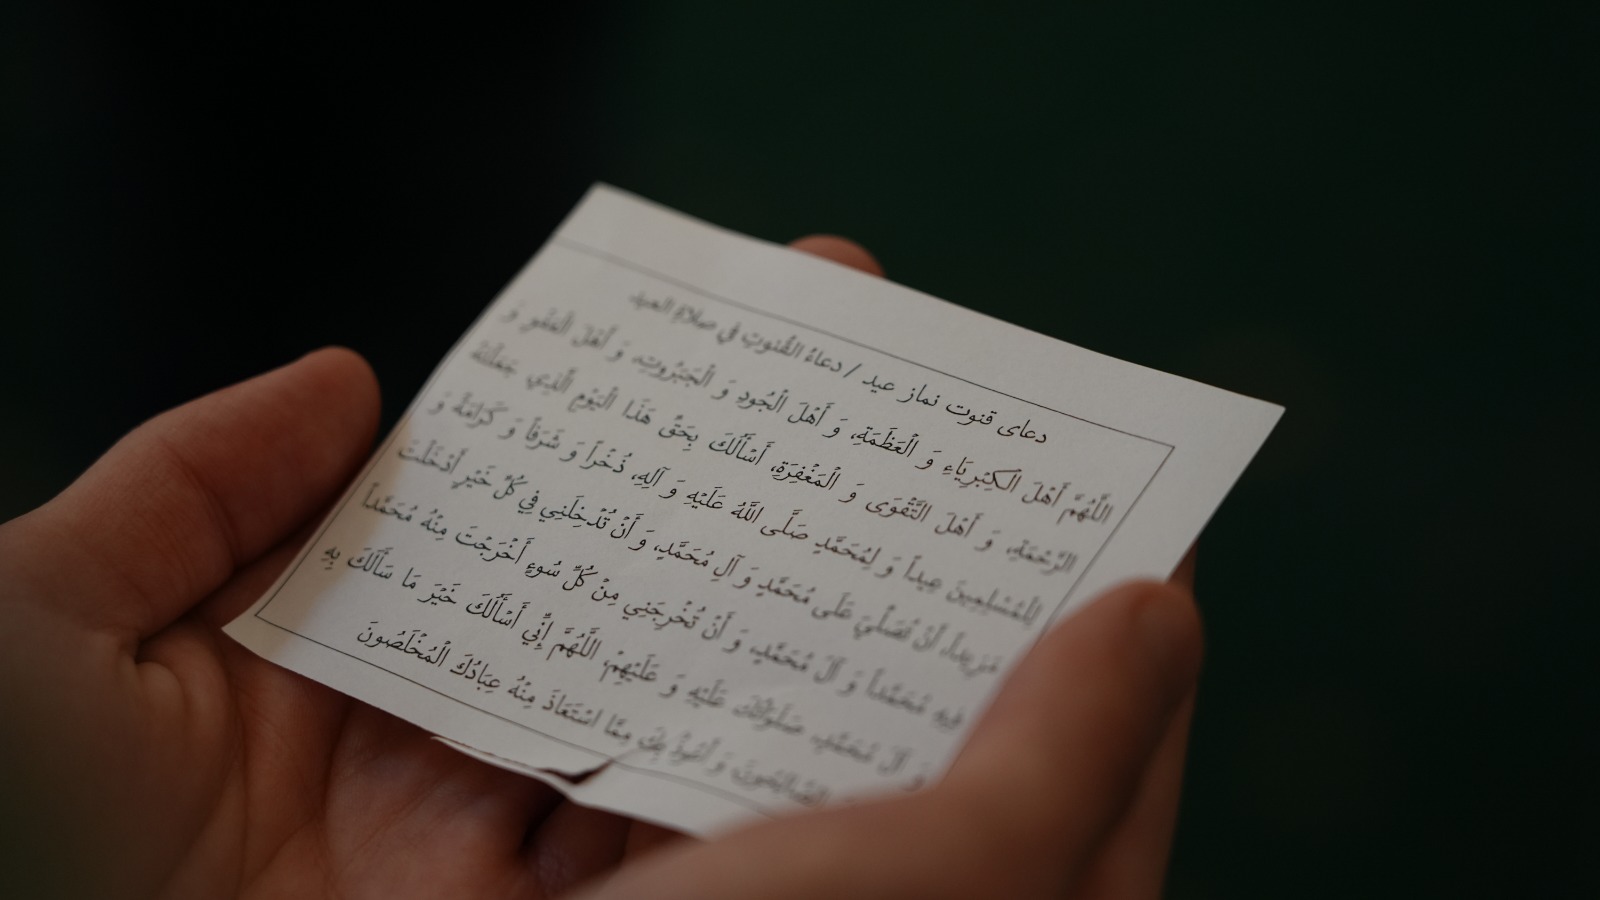 دعای قنوت نماز عید / دعاءُ القُنوتِ في صلاةِ العيد
اللَّهُمَّ أَهْلَ الْكِبْرِيَاءِ وَ الْعَظَمَةِ، وَ أَهْلَ الْجُودِ وَ الْجَبَرُوتِ، وَ أَهْلَ الْعَفْوِ وَ
الرَّحْمَةِ، وَ أَهْلَ التَّقْوَى وَ الْمَغْفِرَةِ، أَسْأَلُكَ بِحَقِّ هَذَا الْيَوْمِ الَّذِي جَعَلْتَهُ
لِلْمُسْلِمِينَ عِيداً وَ لِمُحَمَّدٍ صَلَّى اللَّهُ عَلَيْهِ وَ آلِهِ، ذُخْراً وَ شَرَفاً وَ كَرَامَةً وَ
مَزِيداً، أَنْ تُصَلِّيَ عَلَى مُحَمَّدٍ وَ آلِ مُحَمَّدٍ، وَ أَنْ تُدْخِلَنِي فِي كُلِّ خَيْرٍ أَدْخَلْتَ
فِيهِ مُحَمَّداً وَ آلَ مُحَمَّدٍ، وَ أَنْ تُخْرِجَنِي مِنْ كُلِّ سُوءٍ أَخْرَجْتَ مِنْهُ مُحَمَّداً
وَ آلَ مُحَمَّدٍ، صَلَوَاتُكَ عَلَيْهِ وَ عَلَيْهِمْ، اللَّهُمَّ إِنِّي أَسْأَلُكَ خَيْرَ مَا سَأَلَكَ بِهِ
الصَّالِحُونَ وَ أَعُوذُ بِكَ مِمَّا اسْتَعَاذَ مِنْهُ عِبَادُكَ الْمُخْلَصُونَ